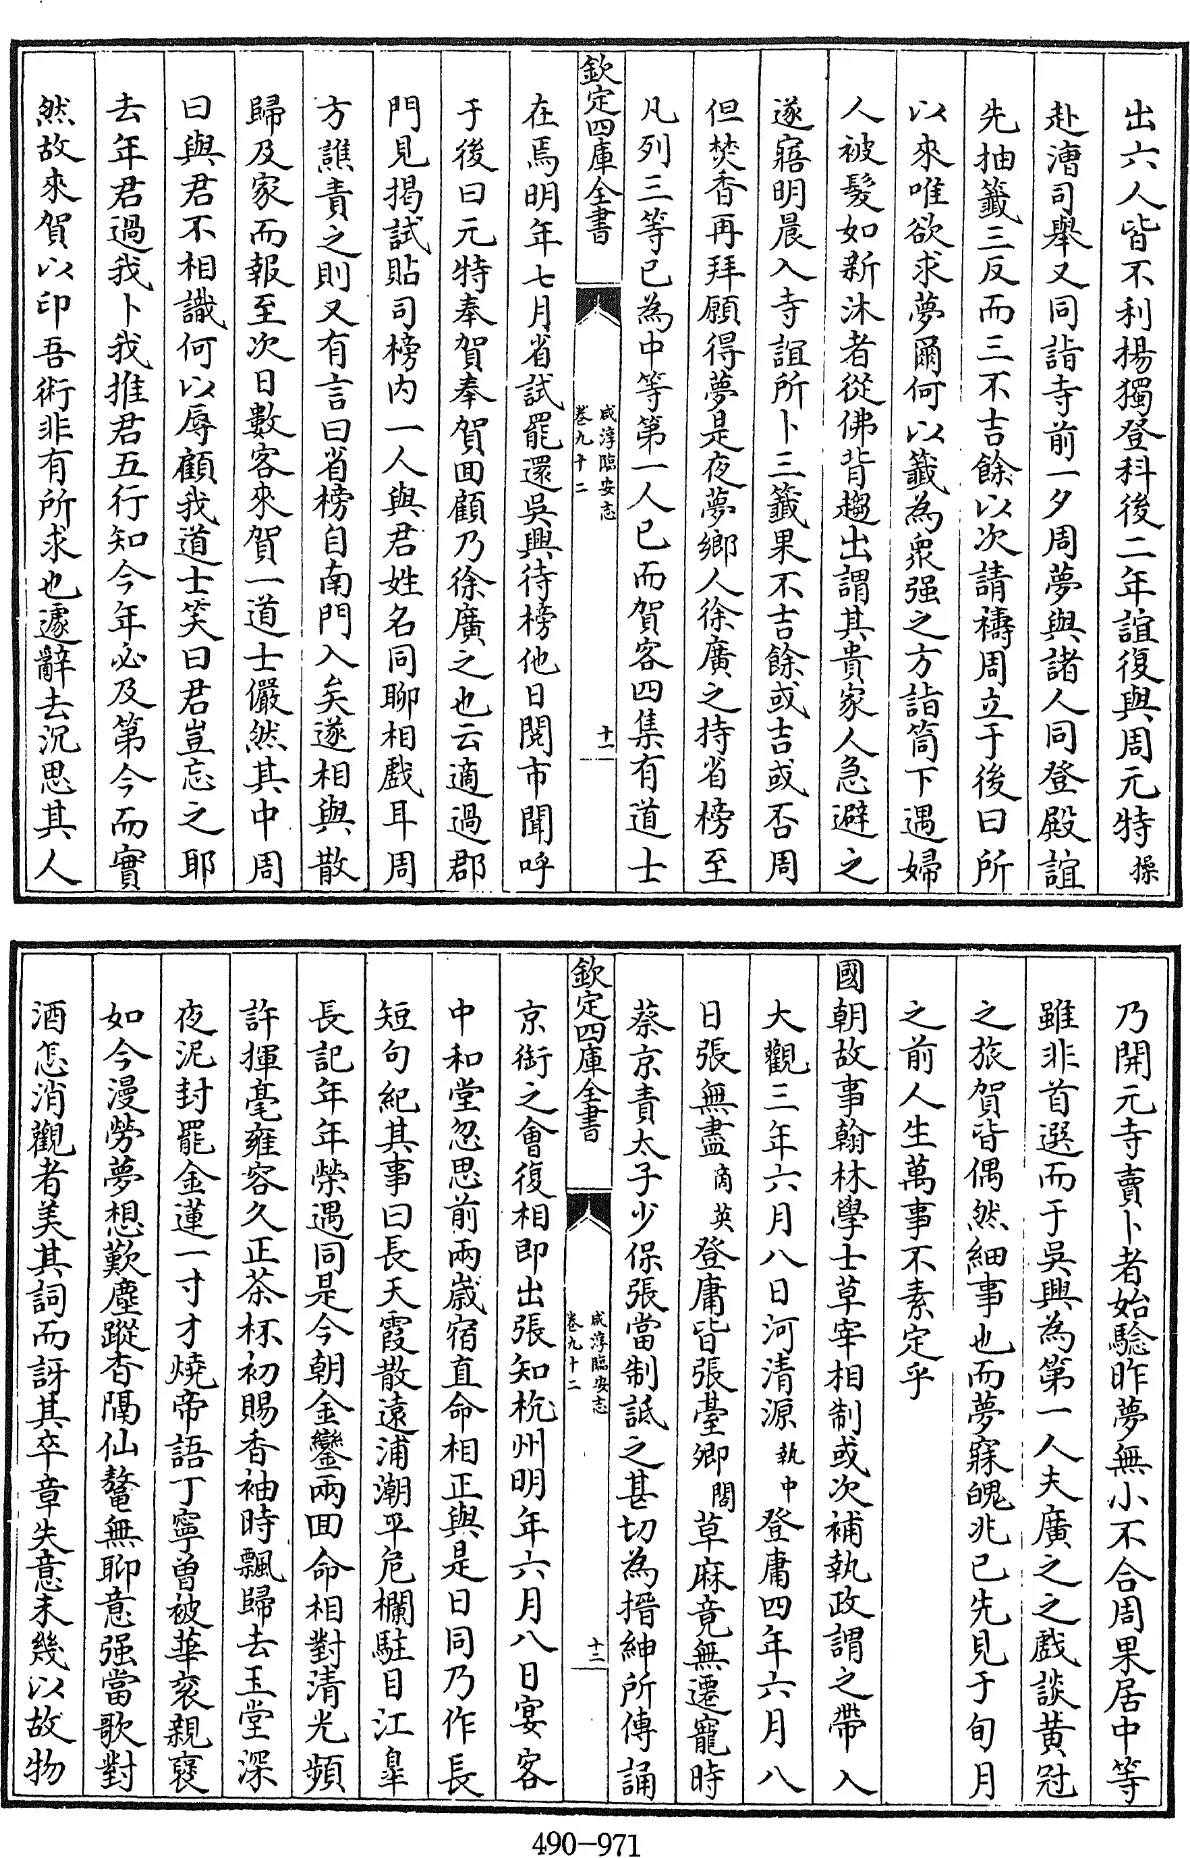 出六人皆不利揚獨登科後二年誼復與周元特操
赴漕司舉又同詣寺前一夕周夢與諸人同登殿誼
先抽籤三反而三不吉餘以次請禱周立于後曰所
以來唯欲求夢爾何以籤為衆强之方詣筒下遇婦
人被髮如新沐者從佛背趨出謂其貴家人急避之
遂寤明晨入寺誼所卜三籤果不吉餘或吉或否周
但焚香再拜願得夢是夜夢鄉人徐廣之持省榜至
凡列三等已為中等第一人已而賀客四集有道士
欽定四庫全書
咸淳臨安志
卷九十二
十二
在焉明年七月省試罷還吳興待榜他日閲市聞呼
于後曰元特奉賀奉賀回顧乃徐廣之也云適過郡
門見揭試貼司榜内一人與君姓名同聊相戲耳周
方譙責之則又有言曰省榜自南門入矣遂相與散
歸及家而報至次日數客來賀一道士儼然其中周
曰與君不相識何以辱顧我道士笑曰君豈忘之耶
去年君過我卜我推君五行知今年必及第今而實
然故來賀以印吾術非有所求也遽辭去沉思其人
乃開元寺賣卜者始驗昨夢無小不合周果居中等
雖非首選而于吳興為第一人夫廣之之戲談黄冠
之旅賀皆偶然細事也而夢寐魄兆已先見于旬月
之前人生萬事不素定乎
國朝故事翰林學士草宰相制或次補執政謂之帶入
大觀三年六月八日河清源執中登庸四年六月八
日張無盡商英登庸皆張臺卿閣草麻竟無遷寵時
蔡京責太子少保張當制詆之甚切為搢紳所傳誦
欽定四庫全書
咸淳臨安志
卷九十二
十三
京銜之會復相即出張知杭州明年六月八日宴客
中和堂忽思前兩歳宿直命相正與是日同乃作長
短句紀其事曰長天霞散遠浦潮平危欄駐目江臯
長記年年榮遇同是今朝金鑾兩回命相對清光頻
許揮毫雍容久正茶杯初賜香袖時飄歸去玉堂深
夜泥封罷金蓮一寸才燒帝語丁寧曾被華衮親襃
如今漫勞夢想歎塵蹤杳隔仙鼇無聊意强當歌對
酒怎消觀者美其詞而訝其卒章失意未幾以故物
490-971